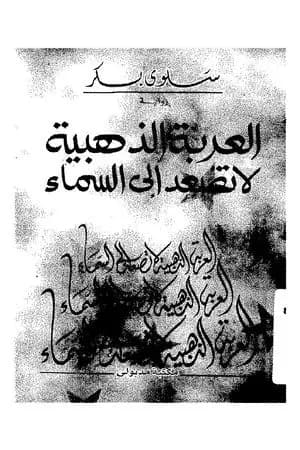 سلوى بكر
رواية
العربة الذهبية
لا تصعد إلى السماء
العربة الذهبية لا تصعد إلى السماء
العربة الذهبية لا تصعد إلى السماء
العربة الذهبية لا تصعد إلى السماء
مكتبة مدبولى